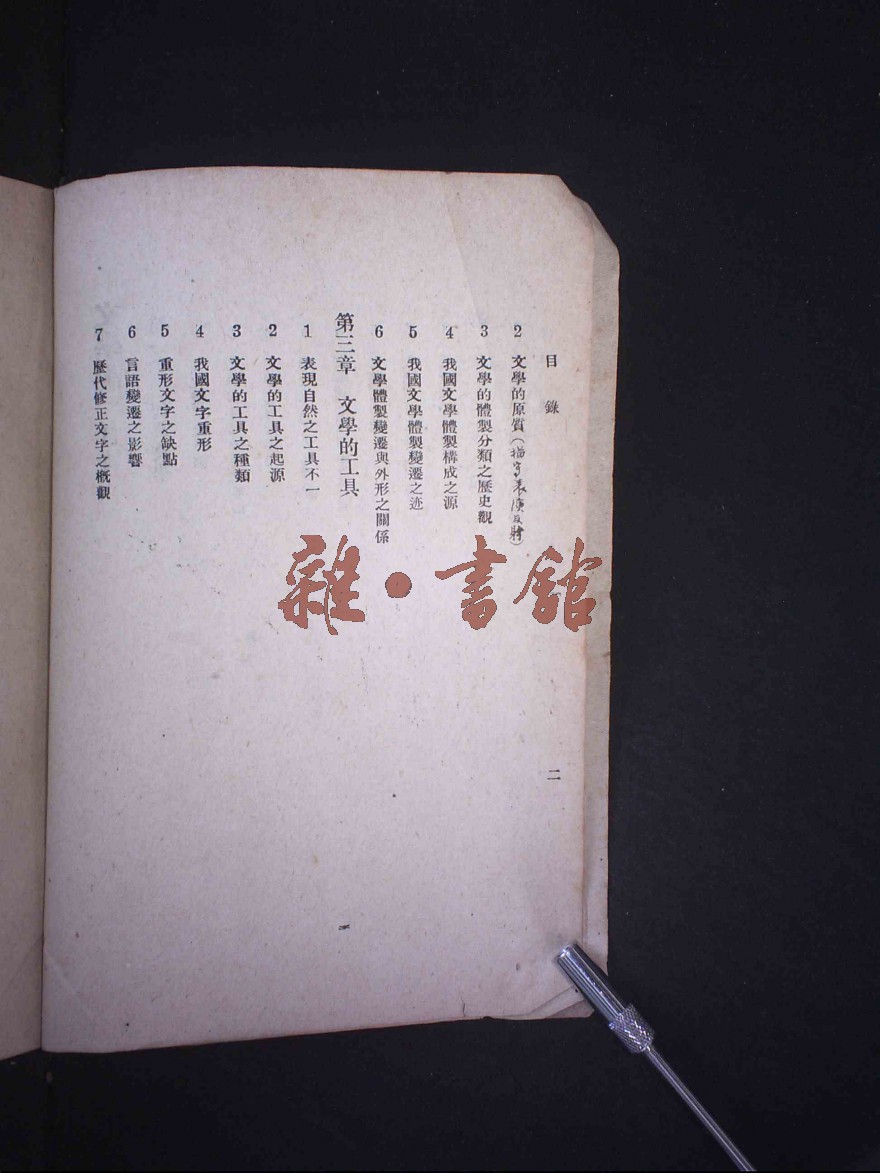 目錄
2 文學的原質
3 文學的體製分類之歷史觀
4 我國文學體製構成之源
5 我國文學體製變遷之迹
6 文學體製變遷與外形之關係
第三章 文學的工具
1 表現自然之工具不一
2 文學的工具之起源
3 文學的工具之種類
4 我國文字重形
5 重形文字之缺點
6 言語變遷之影響
7 歷代修正文字之概觀
二
雜·書館